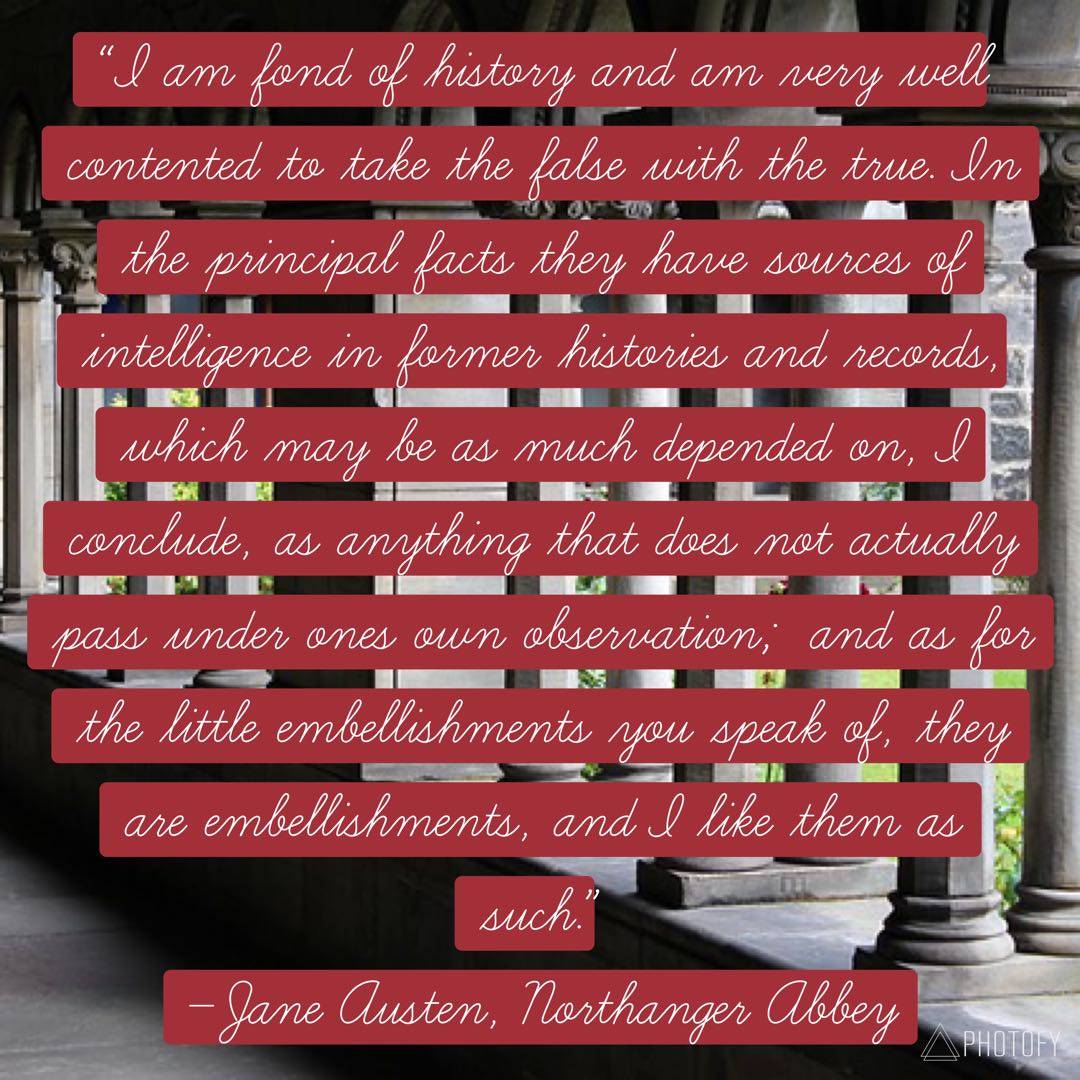 “I am fond of history and am very well
contented to take the false with the true. In
the principal facts they have sources of
intelligence in former histories and records,
which may be as much depended on, I
conclude, as anything that does not actually
pass under ones own observation; and as for
the little embellishments you speak of, they
are embellishments, and I like them as
such.”
–Jane Austen, Northanger Abbey
PHOTOFY